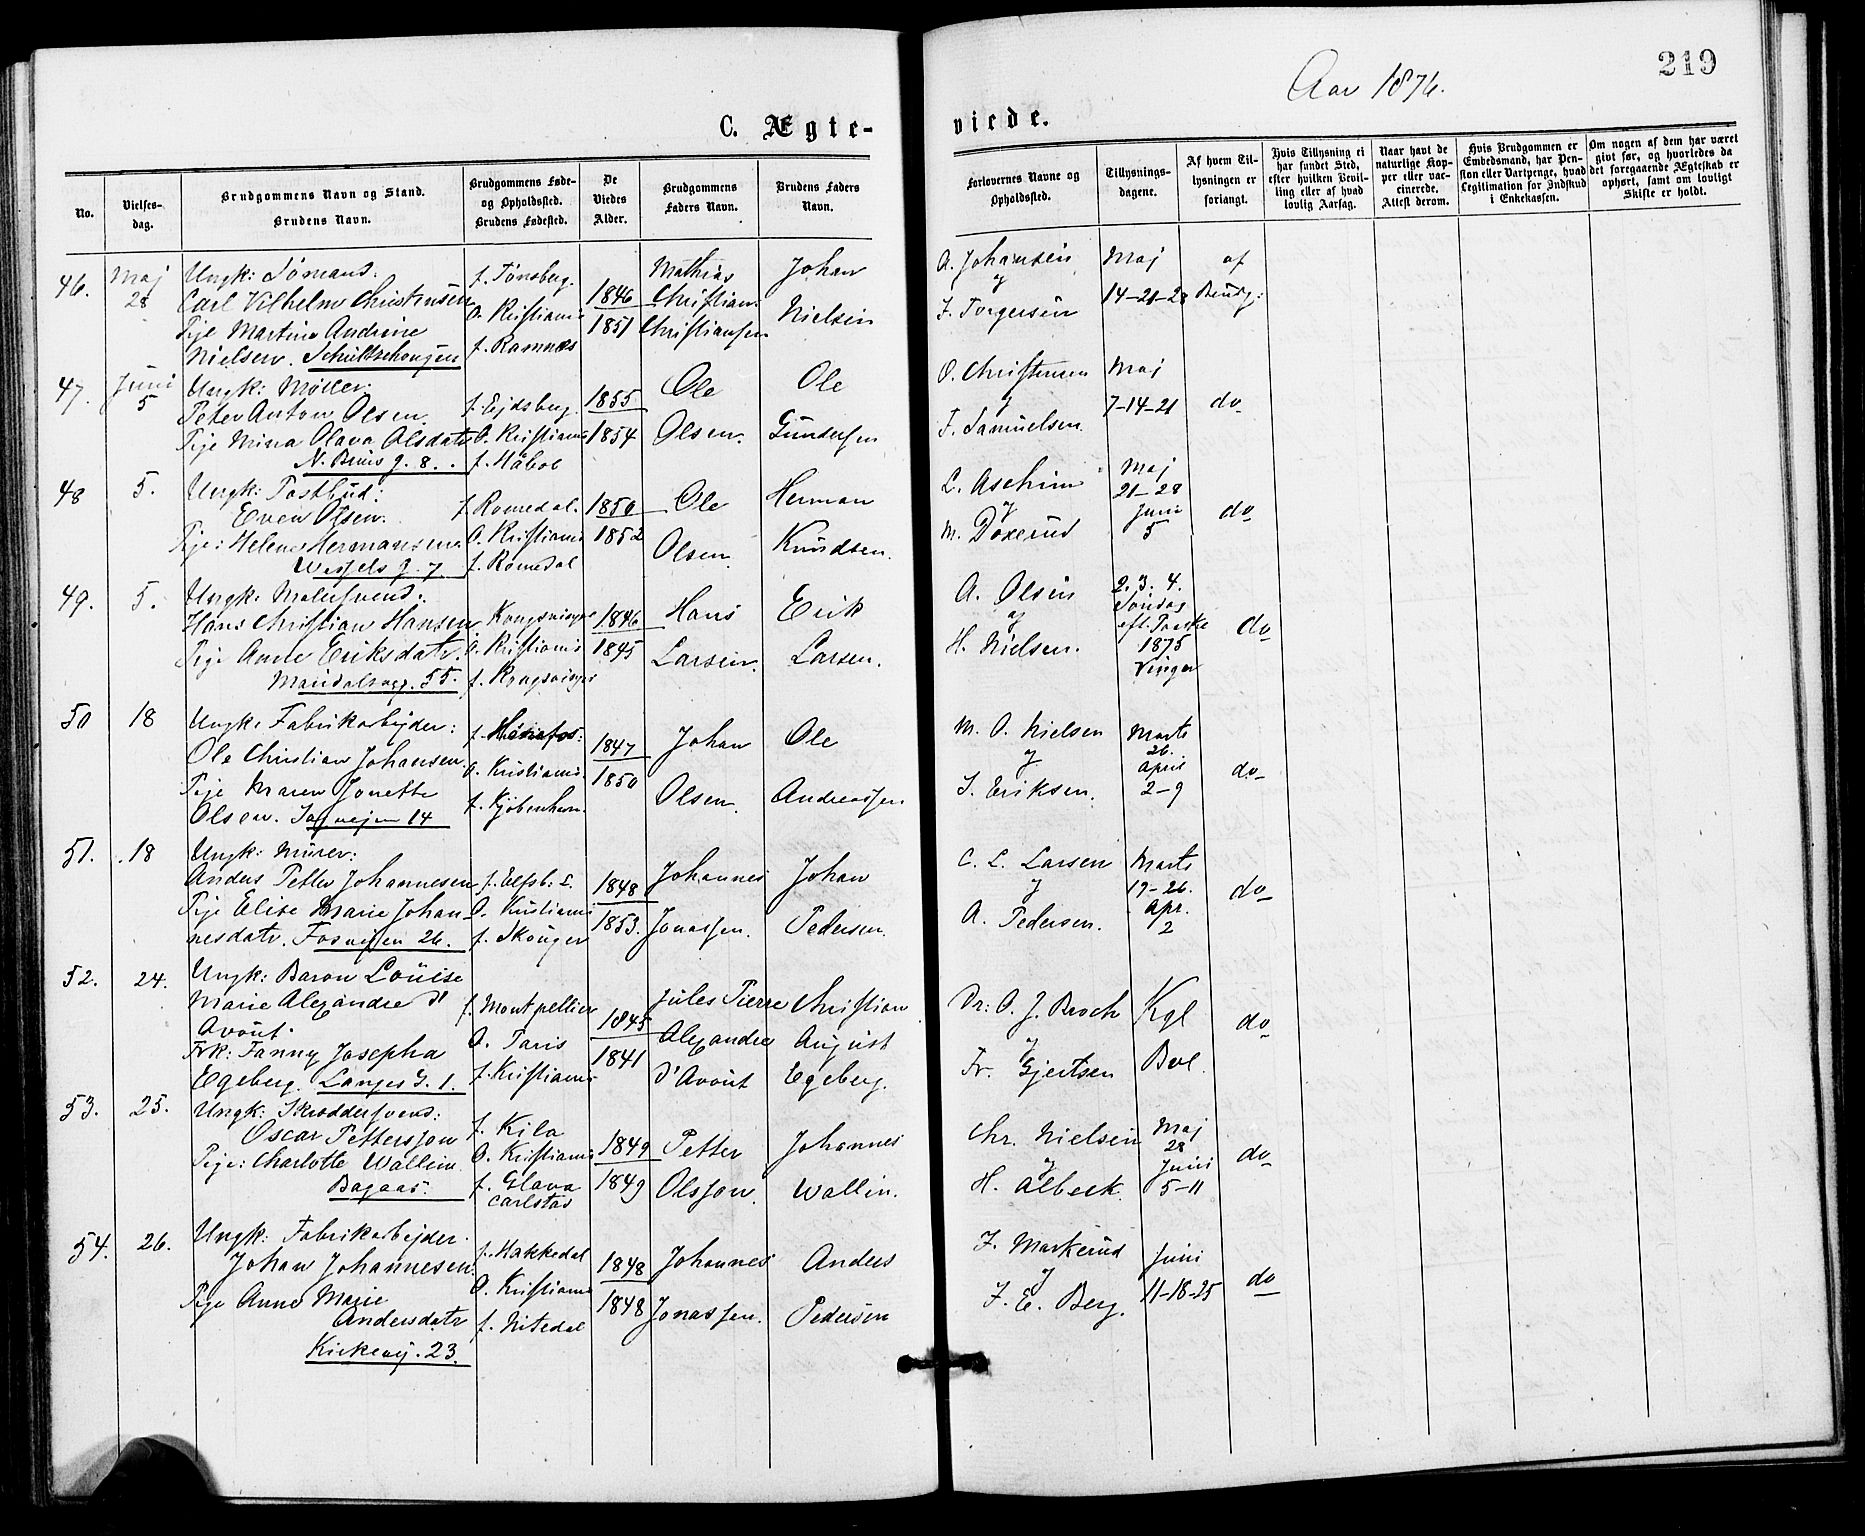 219
Aar 1876.
C. Ægte-
viede.
No.
Vielses-
dag.
Brudgommens Navn og Stand.
Brudens Navn.
Brudgommens Føde-
og Opholdssted.
Brudens Fødested.
De
Viedes
Alder.
Brudgommens
Faders Navn.
Brudens Faders
Navn.
Forlovernes Navne og
Opholdssted.
Tillysnings-
dagene.
Af hvem Til-
lysningen er
forlangt.
Hvis Tillysning ei
har fundet Sted,
efter hvilken Bevil-
ling eller af hvad
lovlig Aarsag.
Naar havt de
naturlige Kop-
per eller vac-
cinerede.
Attest derom.
Hvis Brudgommen er
Embedsmand, har Pen-
sion eller Vartpenge, hvad
Legitimation for Indskud
i Enkekassen.
Om nogen af dem har været
givt før, og hvorledes da
det foregaaende Ægteskab er
ophørt, samt om lovligt
Skifte er holdt.
46.
Maj
28
Ungk: Sømand.
Carl Vilhelm Christensen
Pige Martine Andrine
Nielsen. Schultzehougen
f. Tønsberg.
O. Kristiania
f. Ramnæs
1846
1851
Mathias
Christian
Christiansen
Johan
Nielsen
A. Johansen
og
F. Torgersen
Maj
14-21-28
af
Brudg:
47.
Juni
5
Ungk: Møller.
Peter Anton Olsen.
Pige Mina Olava Olsdatr
N. Brus g. 8.
f. Ejdsberg.
O. Kristiania
f. Håbol
1855
1854
Ole
Olsen.
Ole
Gundersen
O. Christensen
og
F. Samuelsen
Maj
7-14-21
do
48
5.
Ungk: Postbud:
Even Olsen.
Pige: Helene Hermansen.
Wessels g. 7.
f. Romedal.
O. Kristiania
f. Romedal
1850
1852
Ole
Olsen.
Herman
Knudsen.
L. Aschim
og
M. Doxerud
Maj
21-28
Juni
5
do
49.
5.
Ungk: Malersvend:
Hans Christian Hansen
Pige Anne Eriksdatr.
Maridalsvej. 55.
Kongsvinger
O. Kristiania
f. Kongsvinger
1846
1845
Hans
Larsen.
Erik
Larsen.
A. Olsen
og
H. Nielsen.
2. 3. 4.
Søndag
eft. Paaske
1875
Vinger
do
50
18
Ungk: Fabrikarbejder:
Ole Christian Johansen.
Pige Maren Jonette
Olsen. Sagvejen 14
f. Hønefos:
O. Kristiania.
f. Kjøbenhavn.
1847
1850
Johan
Olsen.
Ole
Andreassen
M. O. Nielsen
og
I. Eriksen.
Marts
26.
April
2-9
do
51.
18
Ungk: Murer:
Anders Petter Johannesen
Pige Elise Marie Johan-
nesdatr. Fosvejen 26.
f. Elfsb: L.
O. Kristiania
f. Skouger
1848
1853.
Johannes
Jonassen.
Johan
Pedersen.
C. L. Larsen
og
A. Pedersen.
Marts
19-26.
Apr.
2
do
52.
24.
Ungk: Baron Louise
Marie Alexandre d'
Avout.
Frk: Fanny Josepha
Egeberg. Langes G. 1.
f. Montpellier
O. Paris
f. Kristiania
1845
1841
Jules Pierre
Alexandre
d'Avout
Christian
August
Egeberg.
Dr: O. J. Broch
og
Fr. Gjertsen
Kgl
Bev.
do
53.
25.
Ungk: Skræddersvend:
Oscar Pettersson
Pige: Charlotte Wallin.
Bagaas.
f. Kila
O. Kristiania
f. Glava
Carlstad
1849
1849
Petter
Olsson.
Johannes
Wallin.
Chr. Nielsen
og
H. Albeck.
Maj
28
Juni
5-11
do
54.
26.
Ungk: Fabrikarbejder.
Johan Johannesen.
Pige Anne Marie
Andersdatr
Kirkevej. 23.
f. Hakkedal
O. Kristiania
f. Nitedal
1848
1848
Johannes
Jonassen.
Anders
Pedersen
F. Markerud
og
F. E. Berg.
Juni
11-18-25
do